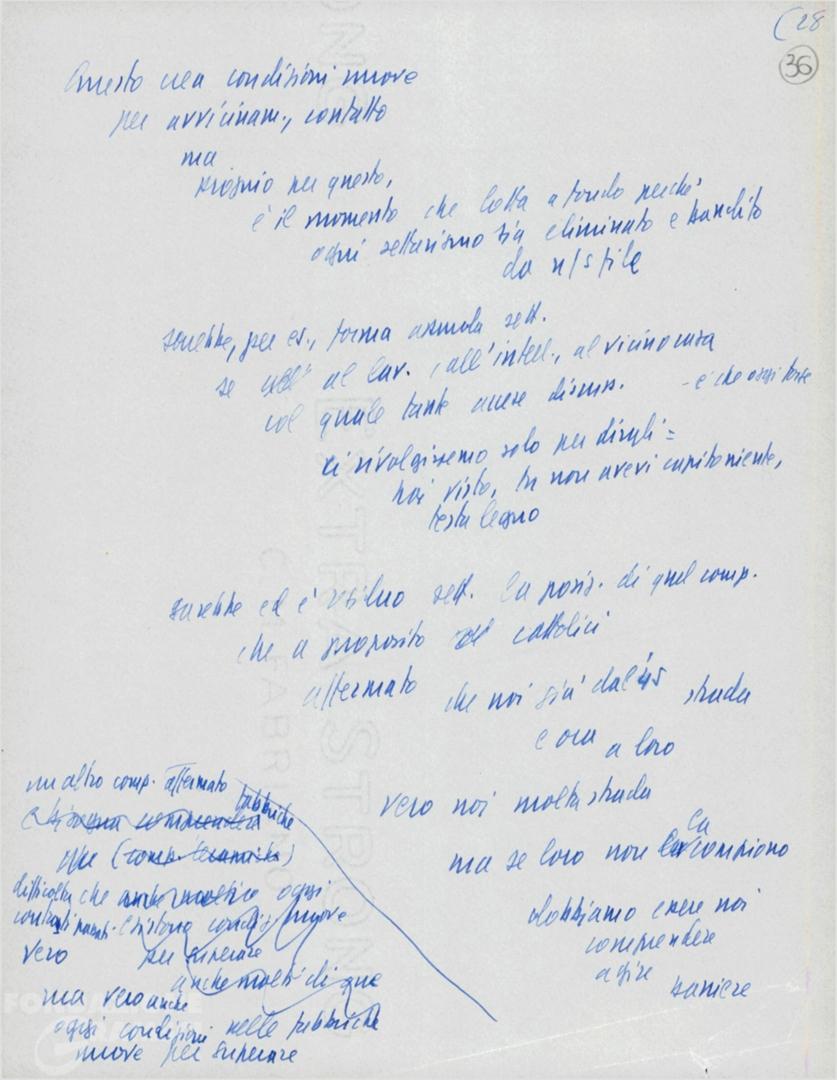 (28
36
Questo crea condizioni nuove
per avvicinam., contatto
ma
proprio per questo,
è il momento che lotta a fondo perché
ogni settarismo sia eliminato e bandito
da n/stile
sarebbe, per es., forma assurda sett.
se al lav., all'intell., al vicino casa
col quale tante avere discuss. - è che oggi forse
ci rivolgissemo solo per dirgli =
hai visto, tu non avevi capito niente,
testa legno
sarebbe ed è sett. la posiz. di quel comp.
che a proposito cattolici
affermato che noi già dal 45 strada
e ora a loro
vero noi molta strada
ma se loro non la compiono
dobbiamo essere noi
comprendere
agire
barriere
un altro comp. affermato
e bisogna fabbriche
che
difficoltà che oggi
esistono condiz. nuove
vero per superare
anche molti di que
ma vero anche
oggi condizioni nelle fabbriche
nuove per superare
EXTRA STRONG
C.M. FABRIANO
FONDAZIONE